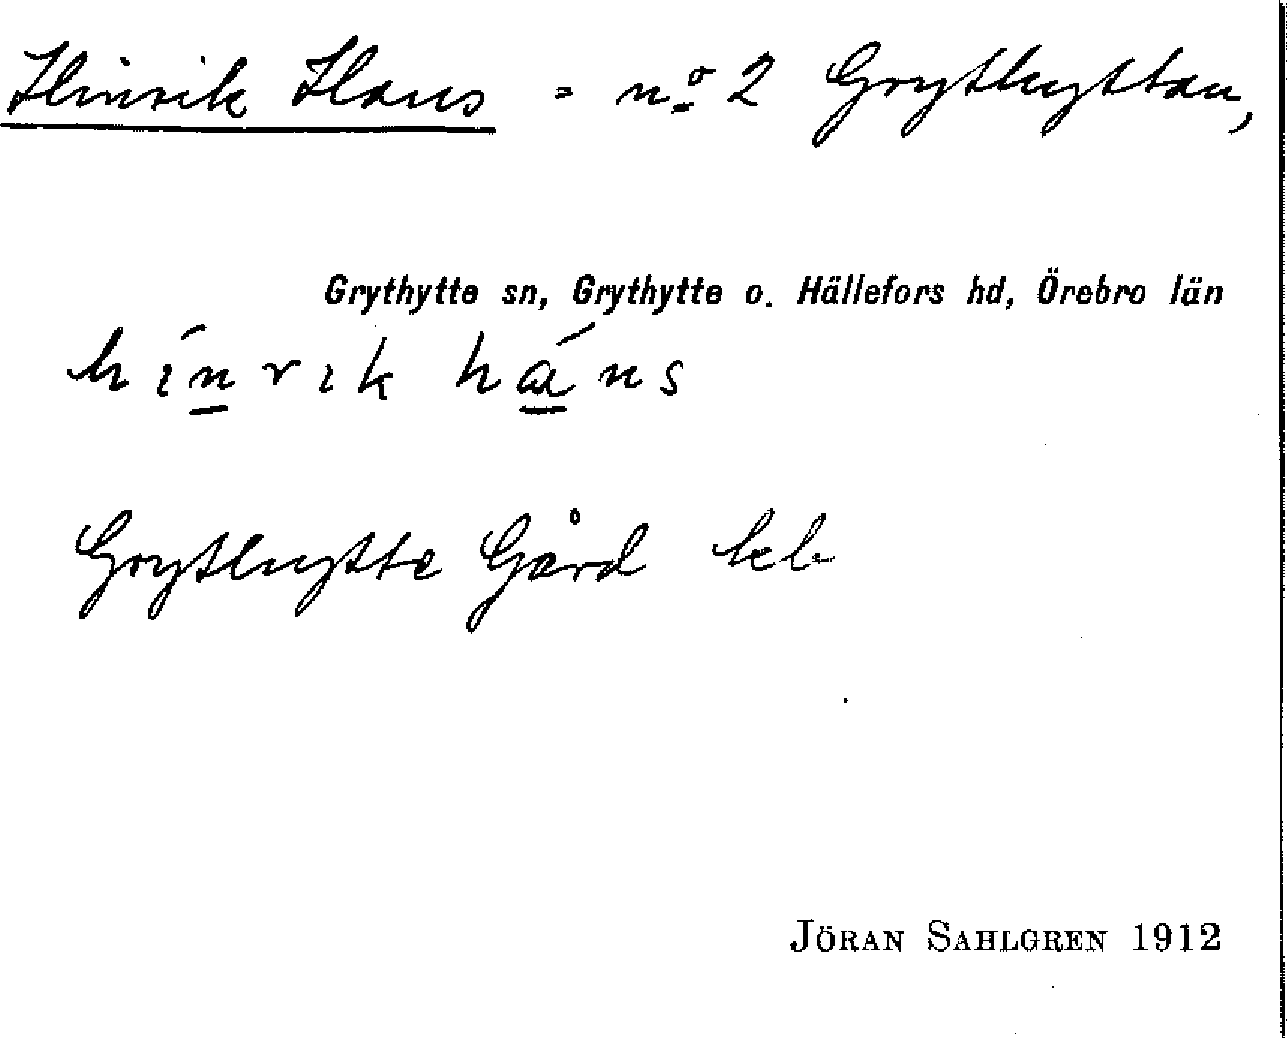 Hinrik Hans = nº 2 Grythyttan,
Grythytte sn, Grythytte o. Hällefors hd, Örebro län
hínrik háns
Grythytte Gård
JÖRAN SAHLGREN 1912